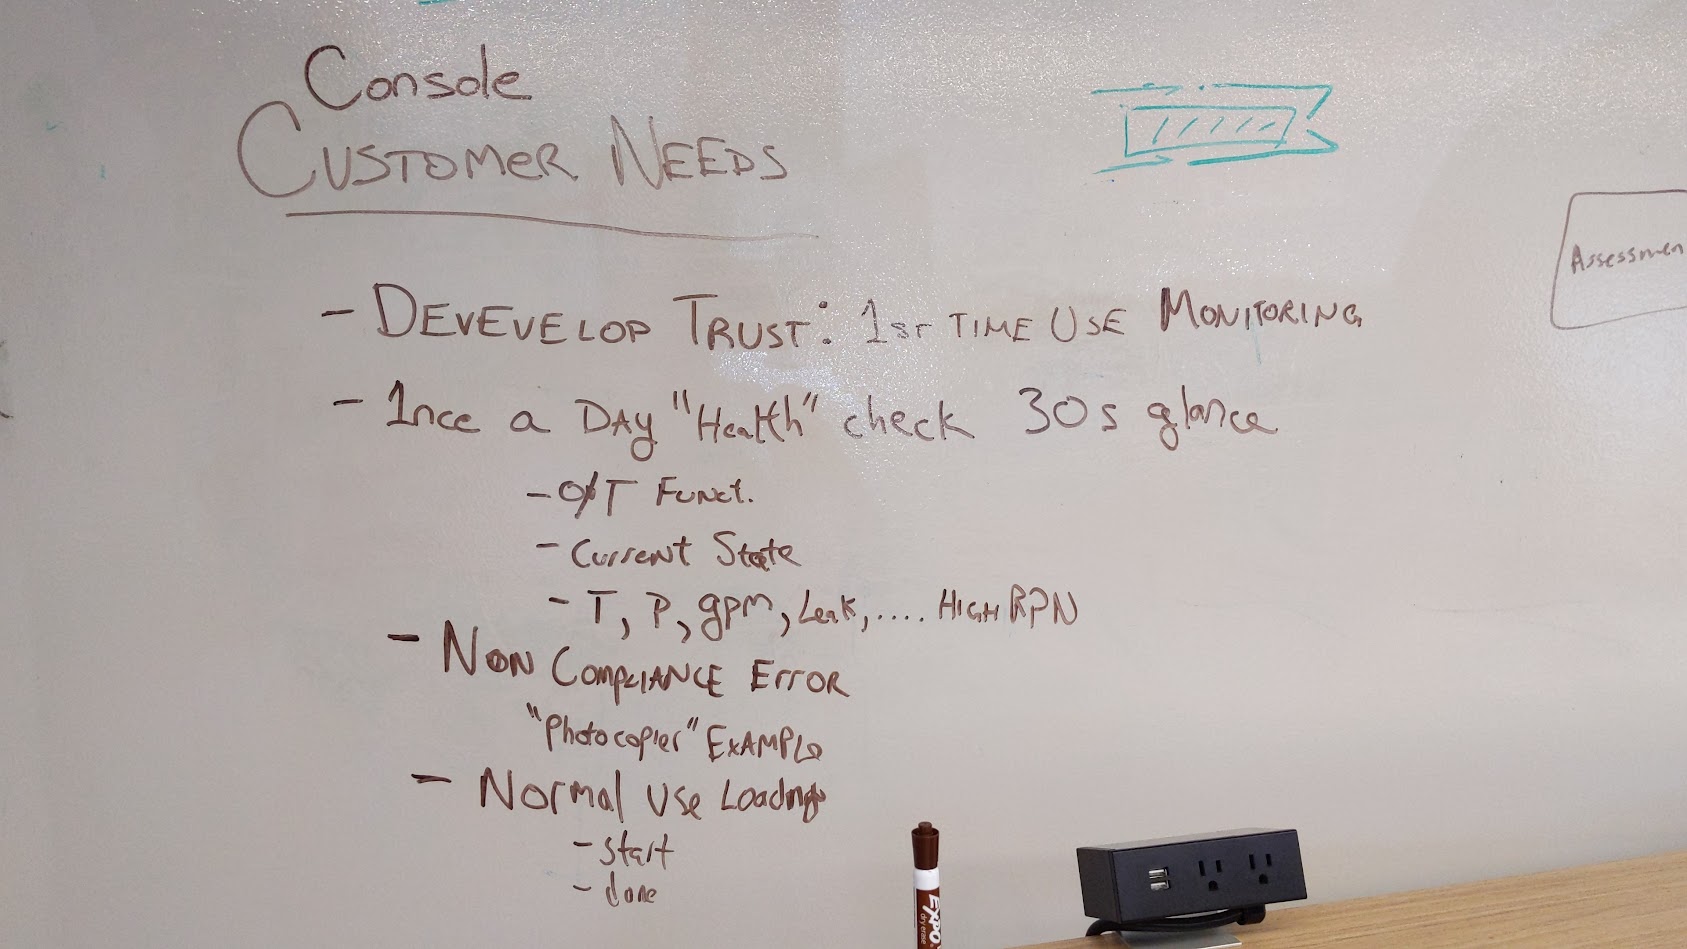 Console
CUSTOMER NEEDS
- DEVEVELOP TRUST: 1ST TIME USE MONITORING
- 1nce a DAY "Health" check 30s glance
- O/T Funct.
- Current State
- T, P, gpm, Leak, .... HIGH RPN
- NON COMPLIANCE ERROR
"Photocopier" EXAMPLe
- Normal Use Loading
- Start
- done
Assessmen
EXPO
dry erase